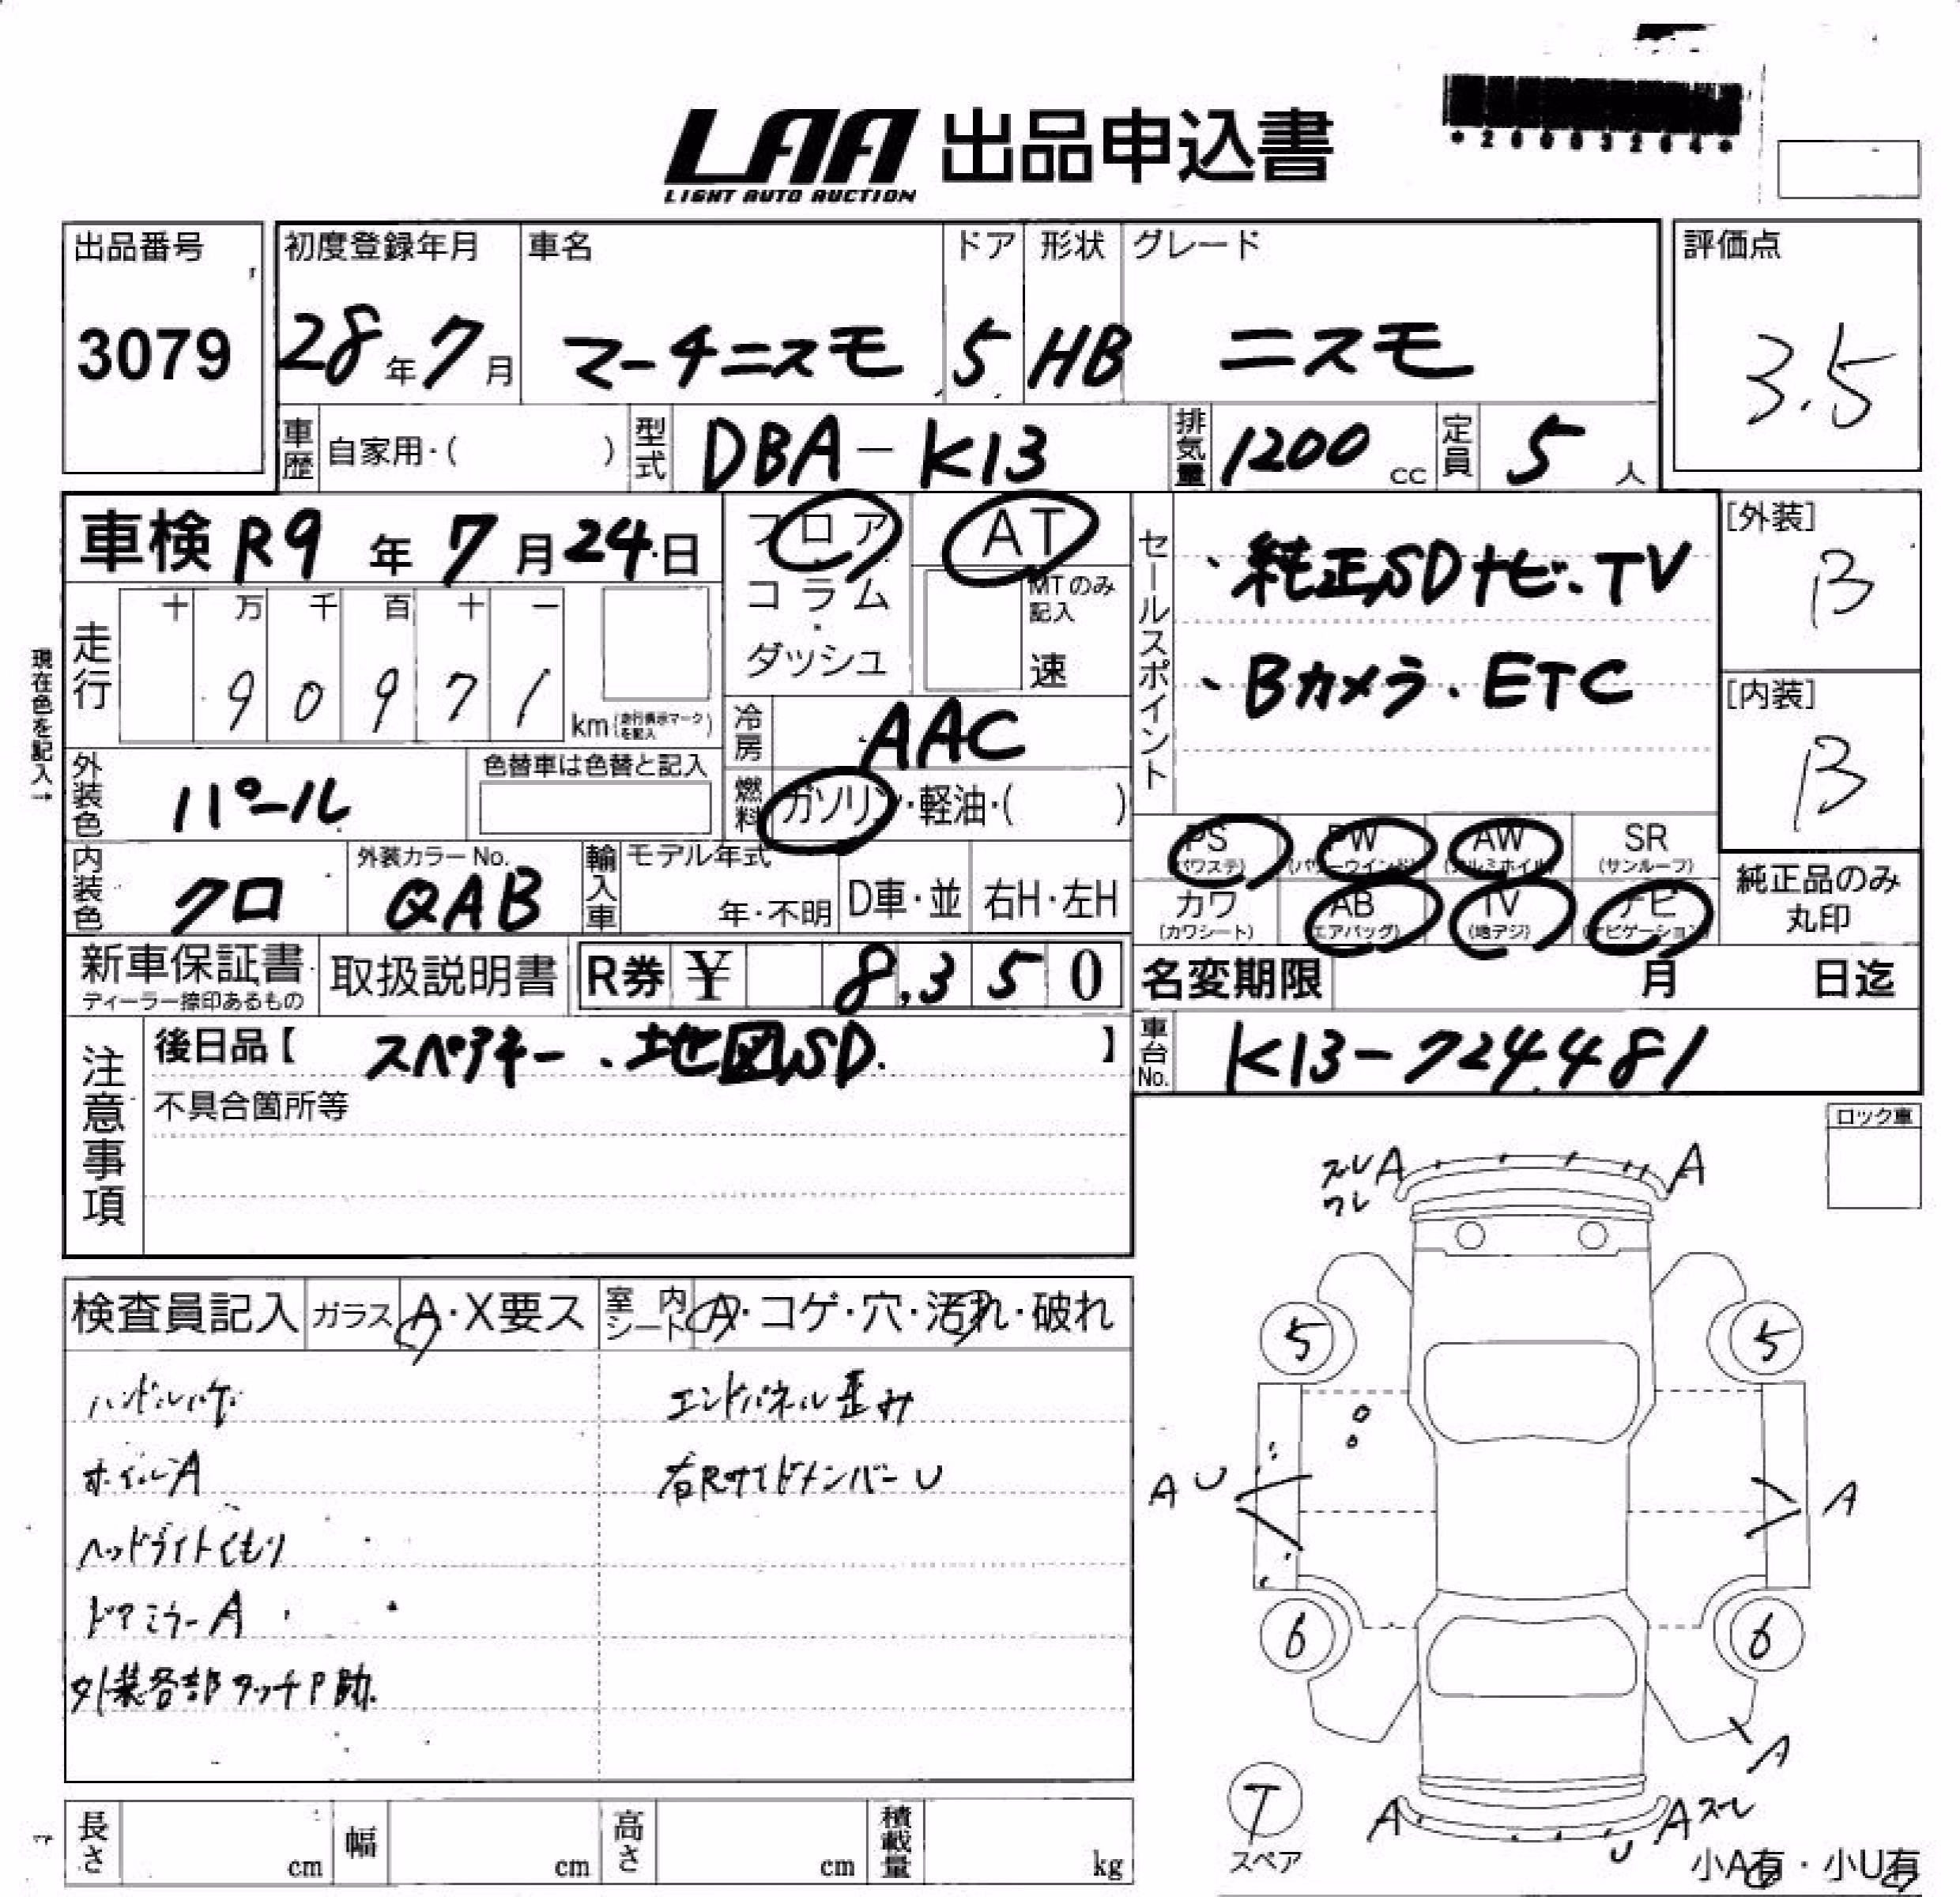 *20003264*
LAA 出品申込書
LIGHT AUTO AUCTION
出品番号 3079
初度登録年月 28年7月
車名 マーチニスモ
ドア 5
形状 HB
グレード ニスモ
評価点 3.5
車歴 自家用・( )
型式 DBA-K13
排気量 1200 cc
定員 5 人
車検 R9年7月24日
フロア
コラム・
ダッシュ
AT
MTのみ記入
速
セールスポイント
、純正SDナビ、TV
、Bカメラ、ETC
[外装] B
[内装] B
現在色を記入→
走行 十 万 千 百 十 一
9 0 9 7 1 km (走行表示マークを記入)
冷房 AAC
燃料 ガソリン・軽油・( )
外装色 パール
色替車は色替と記入
内装色 クロ
外装カラーNo. QAB
輸入車 モデル年式
年・不明
D車・並
右H・左H
PS (パワステ)
PW (パワーウインド)
AW (アルミホイル)
SR (サンルーフ)
カワ (カワシート)
AB (エアバッグ)
TV (地デジ)
ナビ (ナビゲーション)
純正品のみ
丸印
新車保証書
ディーラー捺印あるもの
取扱説明書
R券 ¥ 8,350
名変期限 月 日迄
注意事項
後日品【 スペアキー、地図SD. 】
不具合箇所等
車台No. K13-724481
ロック車
検査員記入
ガラス A・X要ス
室内シート A・コゲ・穴・汚れ・破れ
ハンドルハゲ
ホイルA
ヘッドライトくもり
ドアミラーA
外装各部タッチP跡
エンドパネル歪み
右Rサイドメンバー U
スレ A A
ワレ
5 5
A U A
6 6
A
T
スペア
A A スレ
U
小A有・小U有
長さ cm
幅 cm
高さ cm
積載量 kg